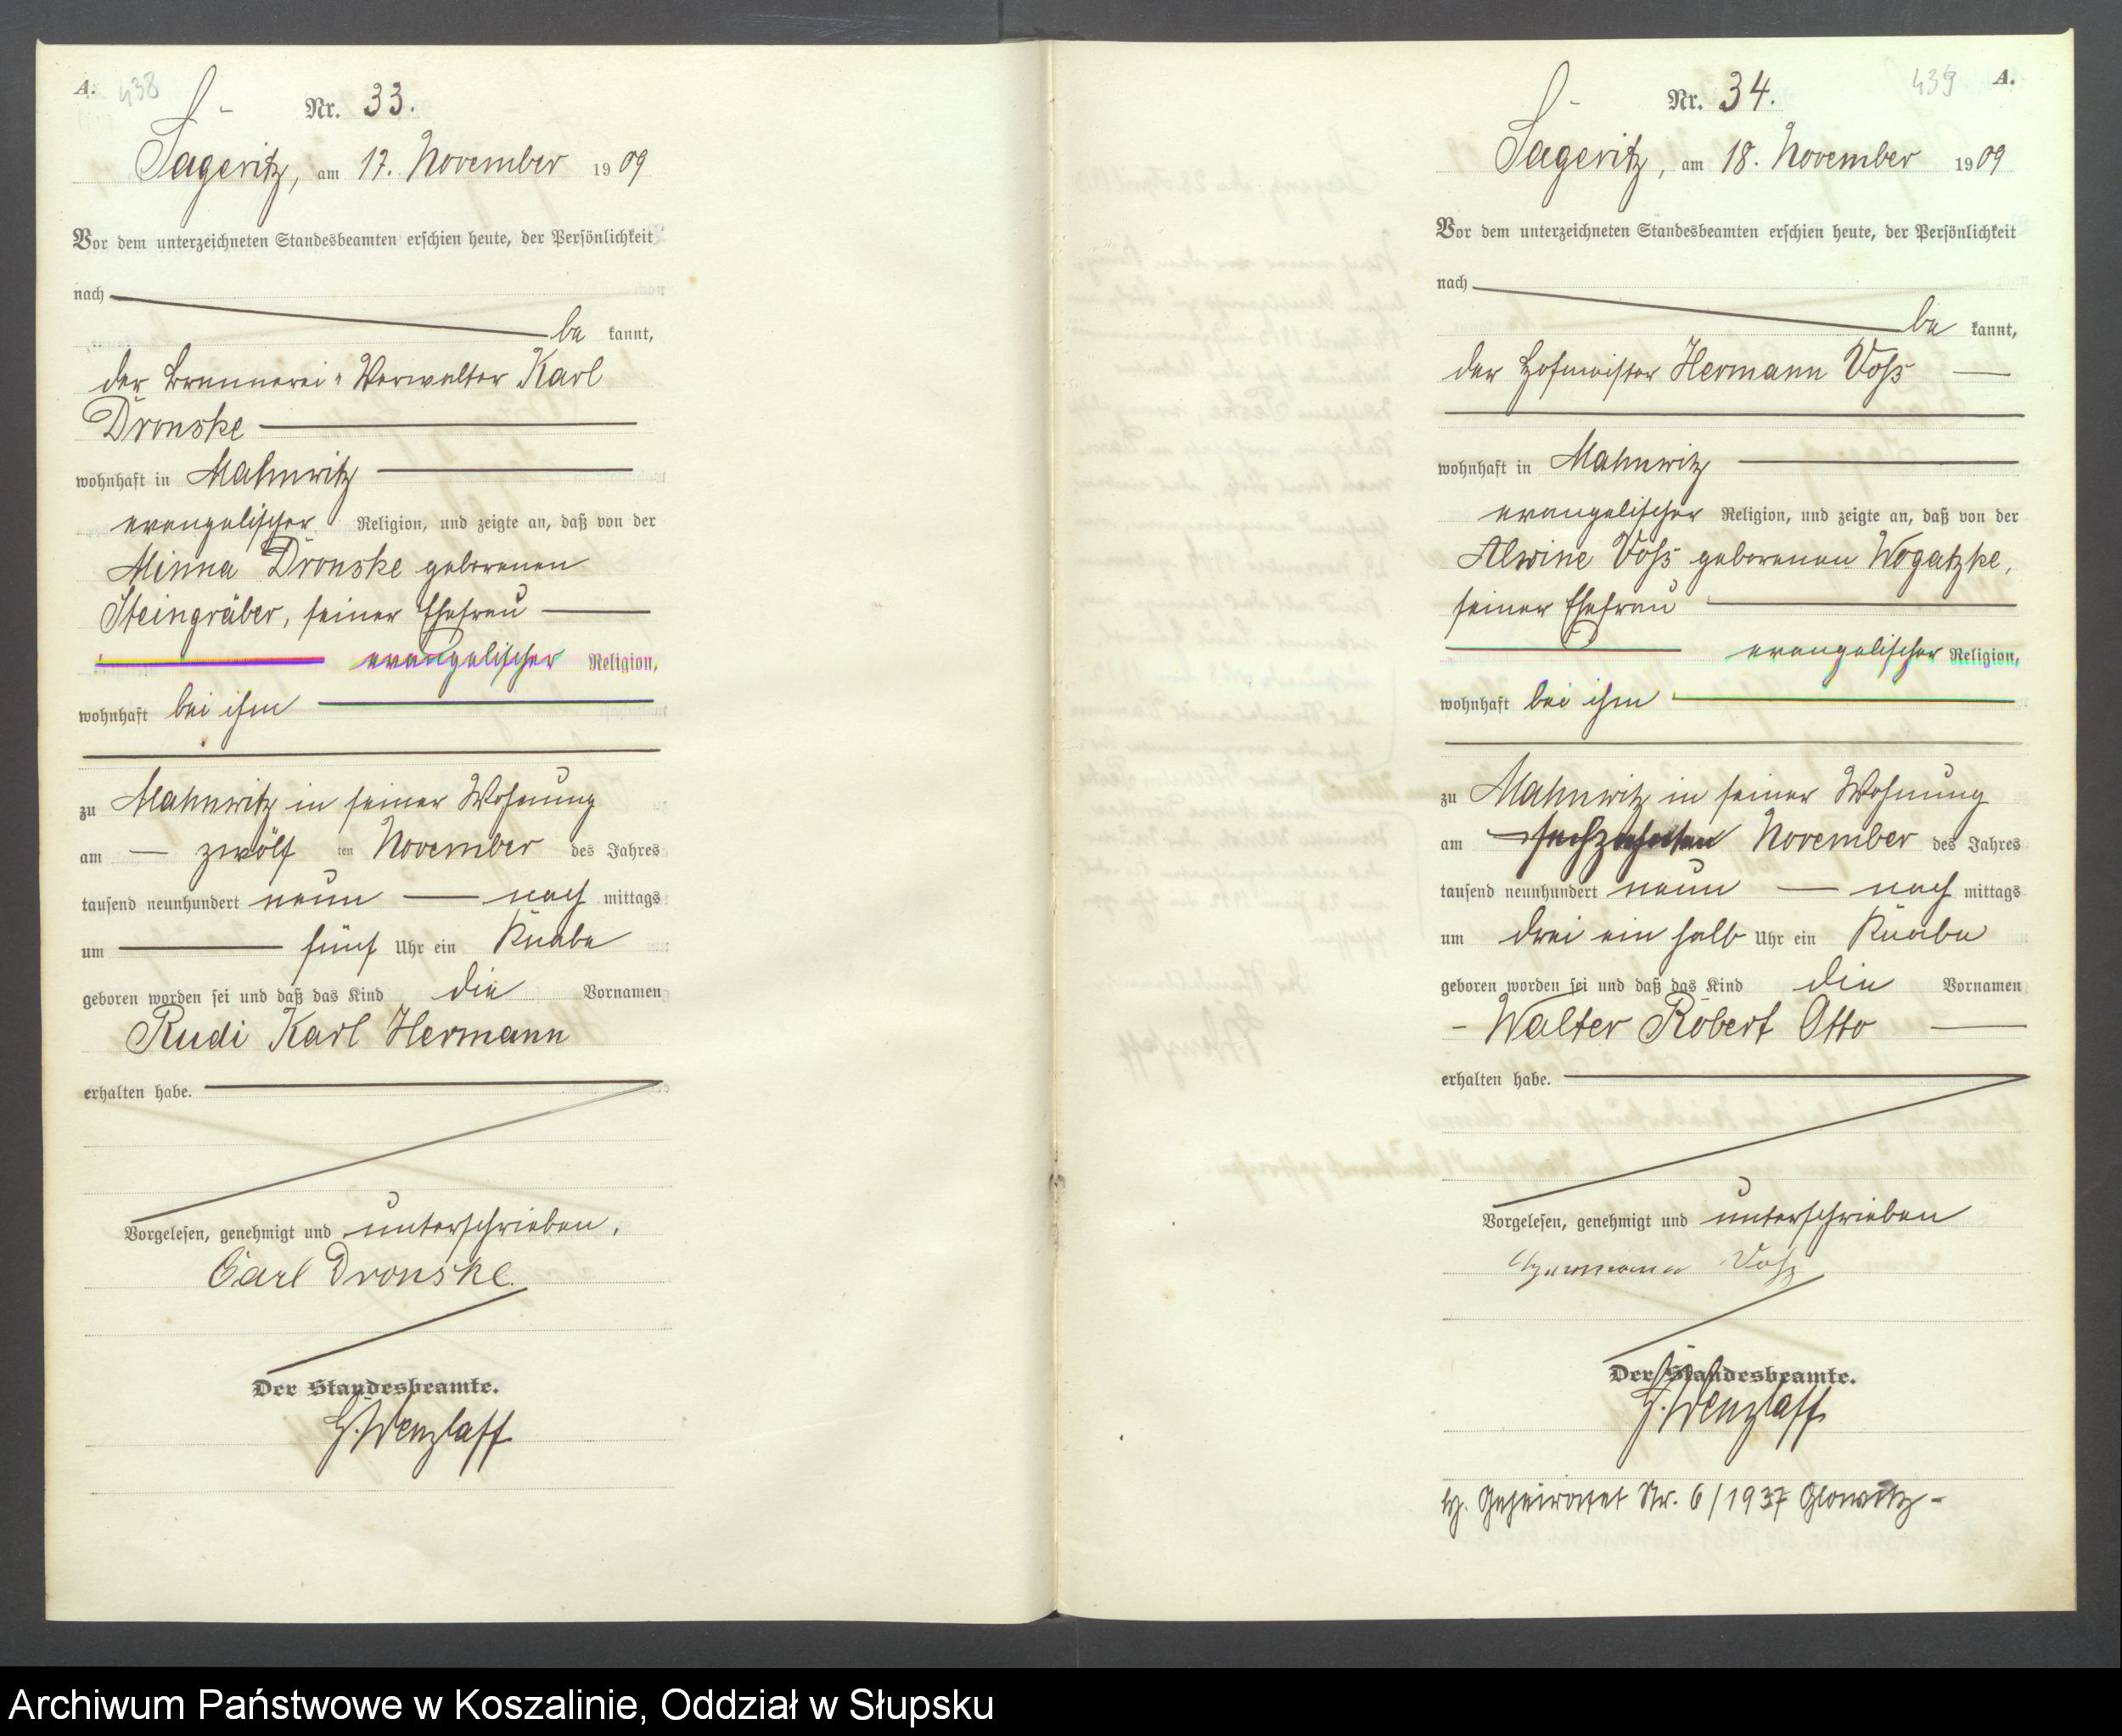 A. 438
Nr. 33.
Sageritz, am 17. November 1909
Vor dem unterzeichneten Standesbeamten erschien heute, der Persönlichkeit
nach
be kannt,
der Brennerei-Verwalter Karl
Dronske
wohnhaft in Mahnwitz
evangelischer Religion, und zeigte an, daß von der
Minna Dronske geborenen
Steingräber, seiner Ehefrau
evangelischer Religion,
wohnhaft bei ihm
zu Mahnwitz in seiner Wohnung
am zwölf ten November des Jahres
tausend neunhundert neun nach mittags
um fünf Uhr ein Knabe
geboren worden sei und daß das Kind die Vornamen
Rudi Karl Hermann
erhalten habe.
Vorgelesen, genehmigt und unterschrieben.
Carl Dronske.
Der Standesbeamte.
H. Wenzlaff
439 A.
Nr. 34.
Sageritz, am 18. November 1909
Vor dem unterzeichneten Standesbeamten erschien heute, der Persönlichkeit
nach
be kannt,
der Hofmeister Hermann Voß
wohnhaft in Mahnwitz
evangelischer Religion, und zeigte an, daß von der
Alwine Voß geborenen Wogatzke,
seiner Ehefrau
evangelischer Religion,
wohnhaft bei ihm
zu Mahnwitz in seiner Wohnung
am sechzehnten November des Jahres
tausend neunhundert neun nach mittags
um drei ein halb Uhr ein Knabe
geboren worden sei und daß das Kind die Vornamen
Walter Robert Otto
erhalten habe.
Vorgelesen, genehmigt und unterschrieben
Hermann Voß
Der Standesbeamte.
H. Wenzlaff
Geheiratet Nr. 6/1937 Glowitz -
Archiwum Państwowe w Koszalinie, Oddział w Słupsku